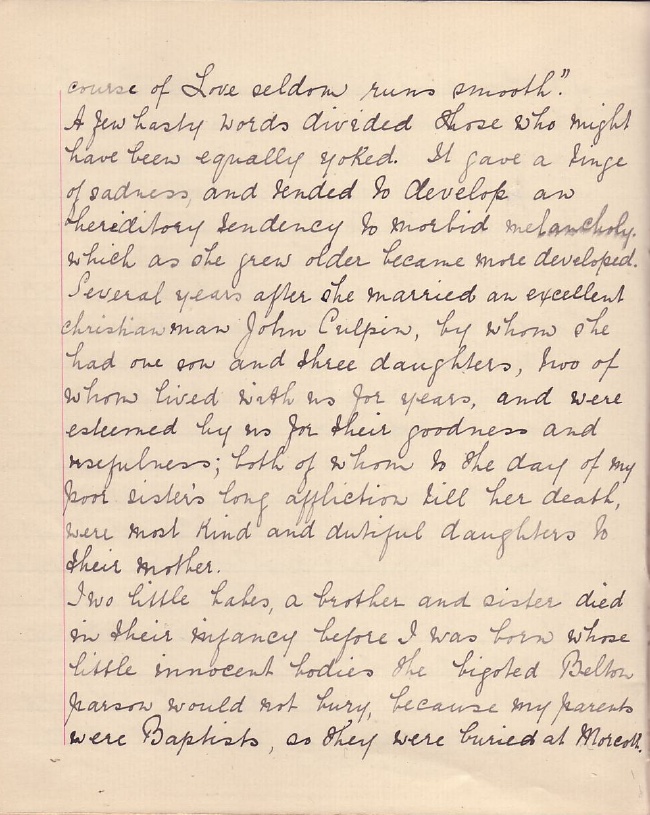 course of Love seldom runs smooth."
A few hasty words divided those who might
have been equally yoked. It gave a tinge
of sadness, and tended to develop an
hereditory tendency to morbid melancholy.
which as she grew older became more developed.
Several years after she married an excellent
christian man John Culpin, by whom she
had one son and three daughters, two of
whom lived with us for years, and were
esteemed by us for their goodness and
usefulness; both of whom to the day of my
poor sister's long affliction till her death,
were most kind and dutiful daughters to
their mother.
Two little babes, a brother and sister died
in their infancy before I was born whose
little innocent bodies the bigoted Belton
parson would not bury, because my parents
were Baptists, so they were buried at Morcott.